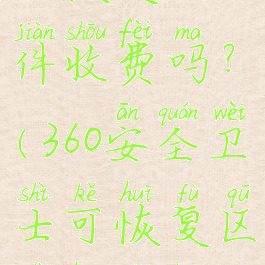 jiàn shōu fèi ma
件收费吗?
ān quán wèi
(360安全卫
shì kě huī fù qū
士可恢复区